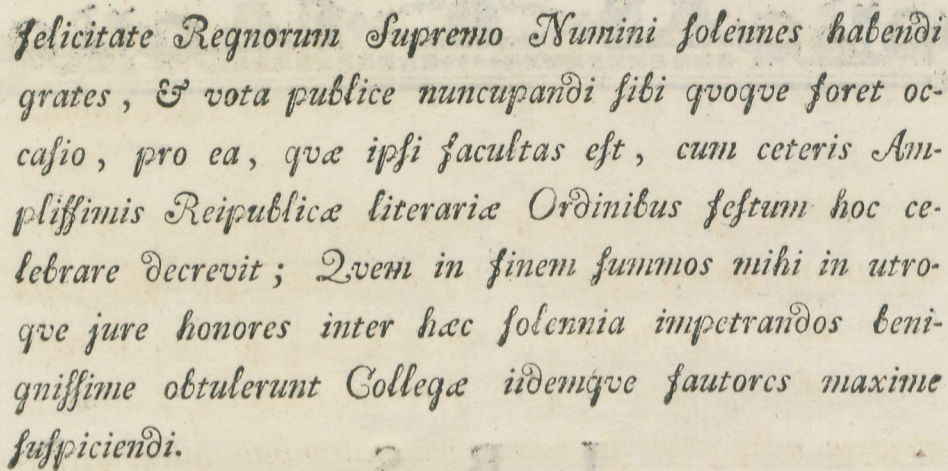 felicitate Regnorum Supremo Numini ſolennes habendi
grates, & vota publice nuncupandi ſibi qvoqve foret oc-
caſio, pro ea, qvæ ipſi facultas eſt, cum ceteris Am-
pliſſimis Reipublicæ literariæ Ordinibus feſtum hoc ce-
lebrare decrevit; Qvem in finem ſummos mihi in utro-
qve jure honores inter hæc ſolennia impetrandos beni-
gniſſime obtulerunt Collegæ iidemqve fautores maxime
ſuſpiciendi.